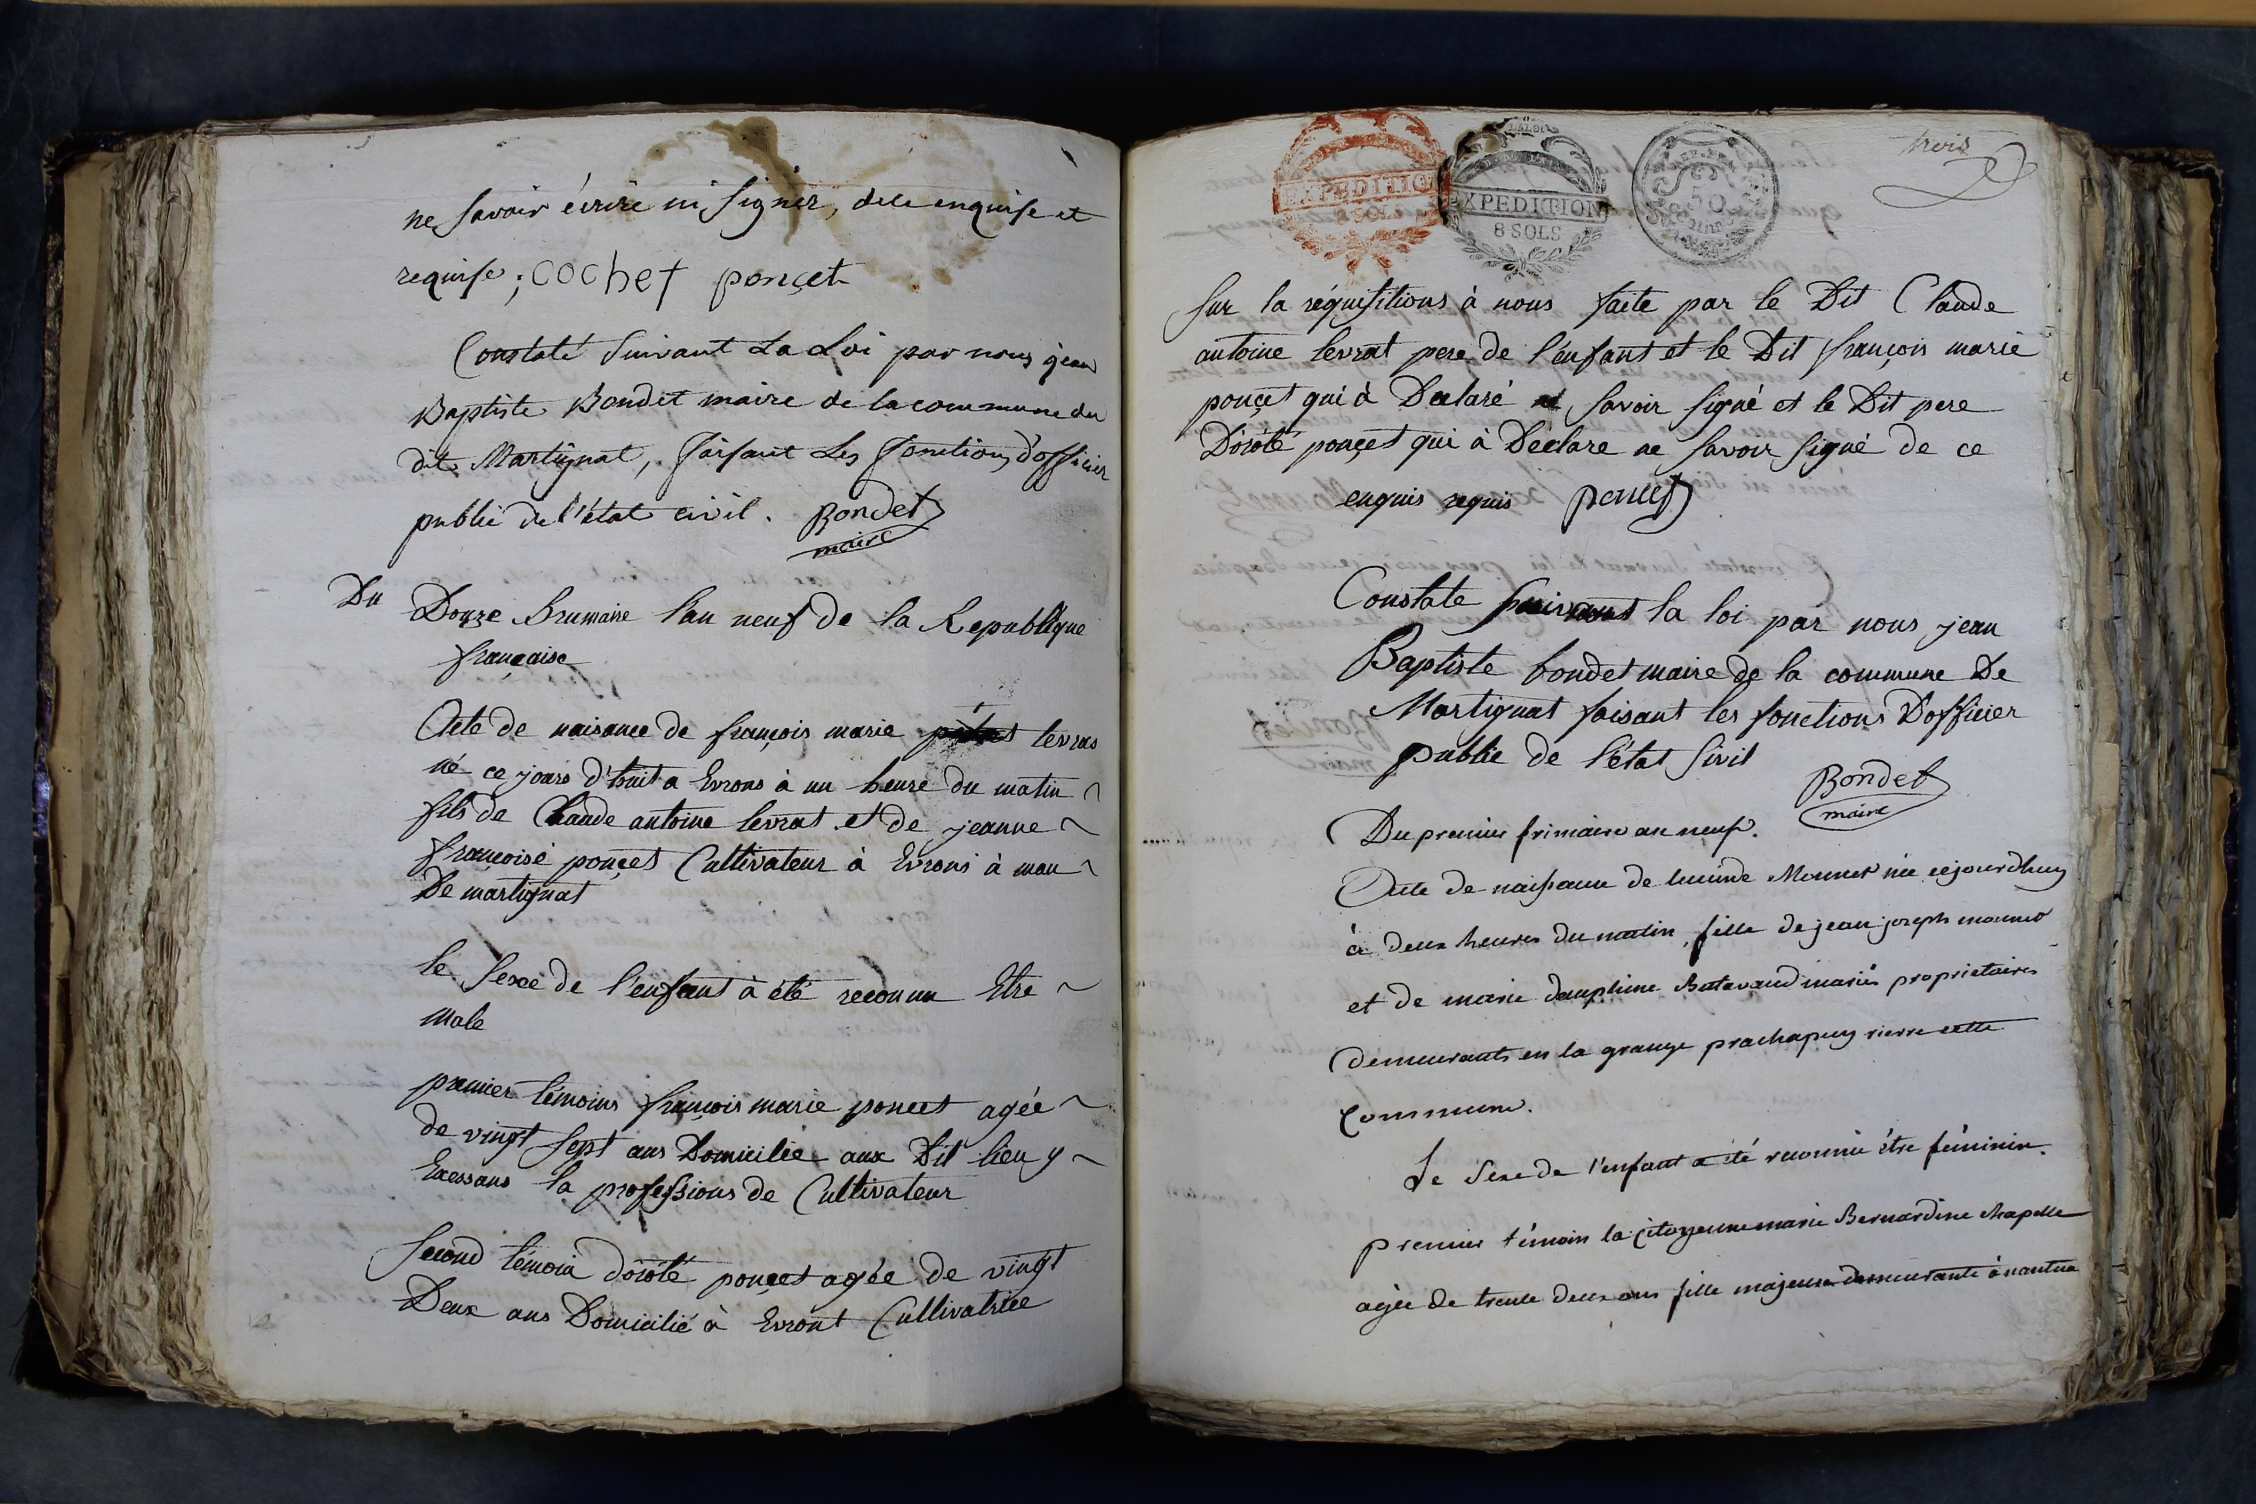 ne savoir écrire ni signer, dece enquise et
requise; cochet ponçet
Constaté suivant La Loi par nous jean
Baptiste Bondet maire de la commune du
dit Martignat, faisant Les fonctions d'officier
public de l'état civil. Bondet
maire
Du Douze Brumaire l'an neuf de la Republique
française
Acte de naisance de françois marie levras
né ce jours d'huit a Evrons à un heure du matin
fils de Claude antoine levrat et de jeanne
françoise ponçet Cultivateur à Evrons à mau
De martignat
le Sexe de l'enfant à été reconnu Etre
male
premier témoins françois marie poncet agée
de vingt sept ans Domicilie aux Dit lieu y
Exessans la professions de Cultivateur
second témoin doroté ponçet agée de vingt
Deux ans Domicilié à Evront Cultivatrice
trois
EXPEDITION
8 SOLS
EXPEDITION
8 SOLS
50
sur la réquisitions à nous faite par le Dit Claude
antoine levrat pere de l'enfant et le Dit françois marie
ponçet qui à Declaré savoir signé et le Dit pere
Doroté ponçet qui à Déclare ne savoir signé de ce
enquis requis poncet
Constate suivant la loi par nous jean
Baptiste bondet maire de la commune De
Martignat faisant les fonctions D'officier
public de l'état sivil
Bondet
maire
Du premier frimaire an neuf.
Acte de naissance de lucinde Monnet née cejourdhuy
à deux heures du matin, fille de jean joseph monnet
et de marie dauphine Batavaud mariés proprietaires
demeurants en la grange prachapuy rierre cette
commune.
Le Sexe de l'enfant a été reconnu être féminin.
premier témoin la Citoyenne marie Bernardine chapelle
agée de trente deux ans fille majeure demeurante à nantua